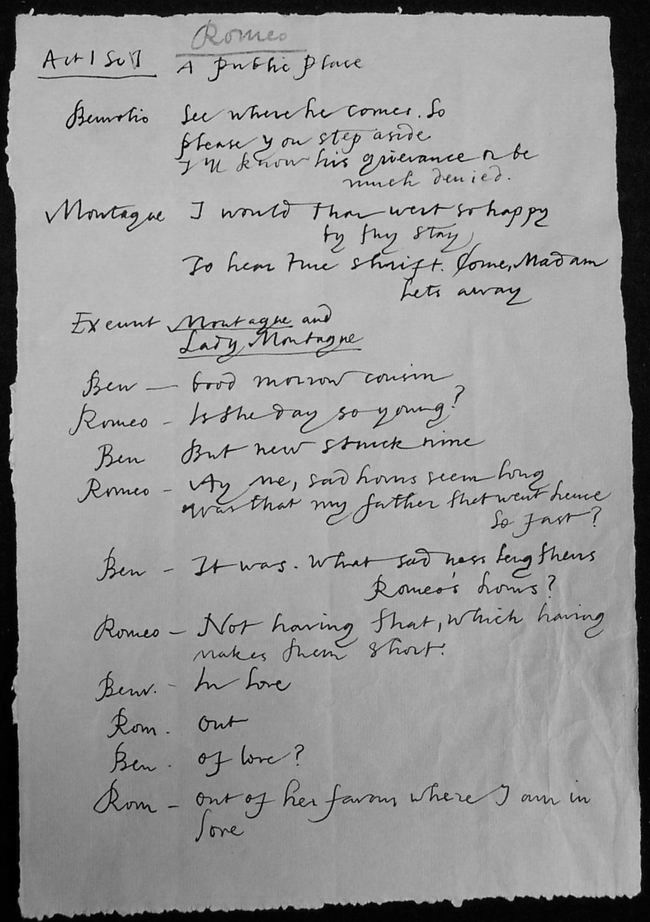 Romeo
Act I Sc I
A Public Place
Benvolio See where he comes. So
please you step aside
I'll know his grievance or be
much denied.
Montague I would thou wert so happy
by thy stay
To hear true shrift. Come, Madam
Lets away
Exeunt Montague and
Lady Montague
Ben — Good morrow cousin
Romeo - Is the day so young?
Ben But new struck nine
Romeo - Ay me, sad hours seem long
was that my father that went hence
So fast?
Ben - It was. What sadness lengthens
Romeo's hours?
Romeo - Not having that, which having
makes them short.
Benv. - In love
Rom. Out
Ben. of love?
Rom - out of her favour where I am in
love